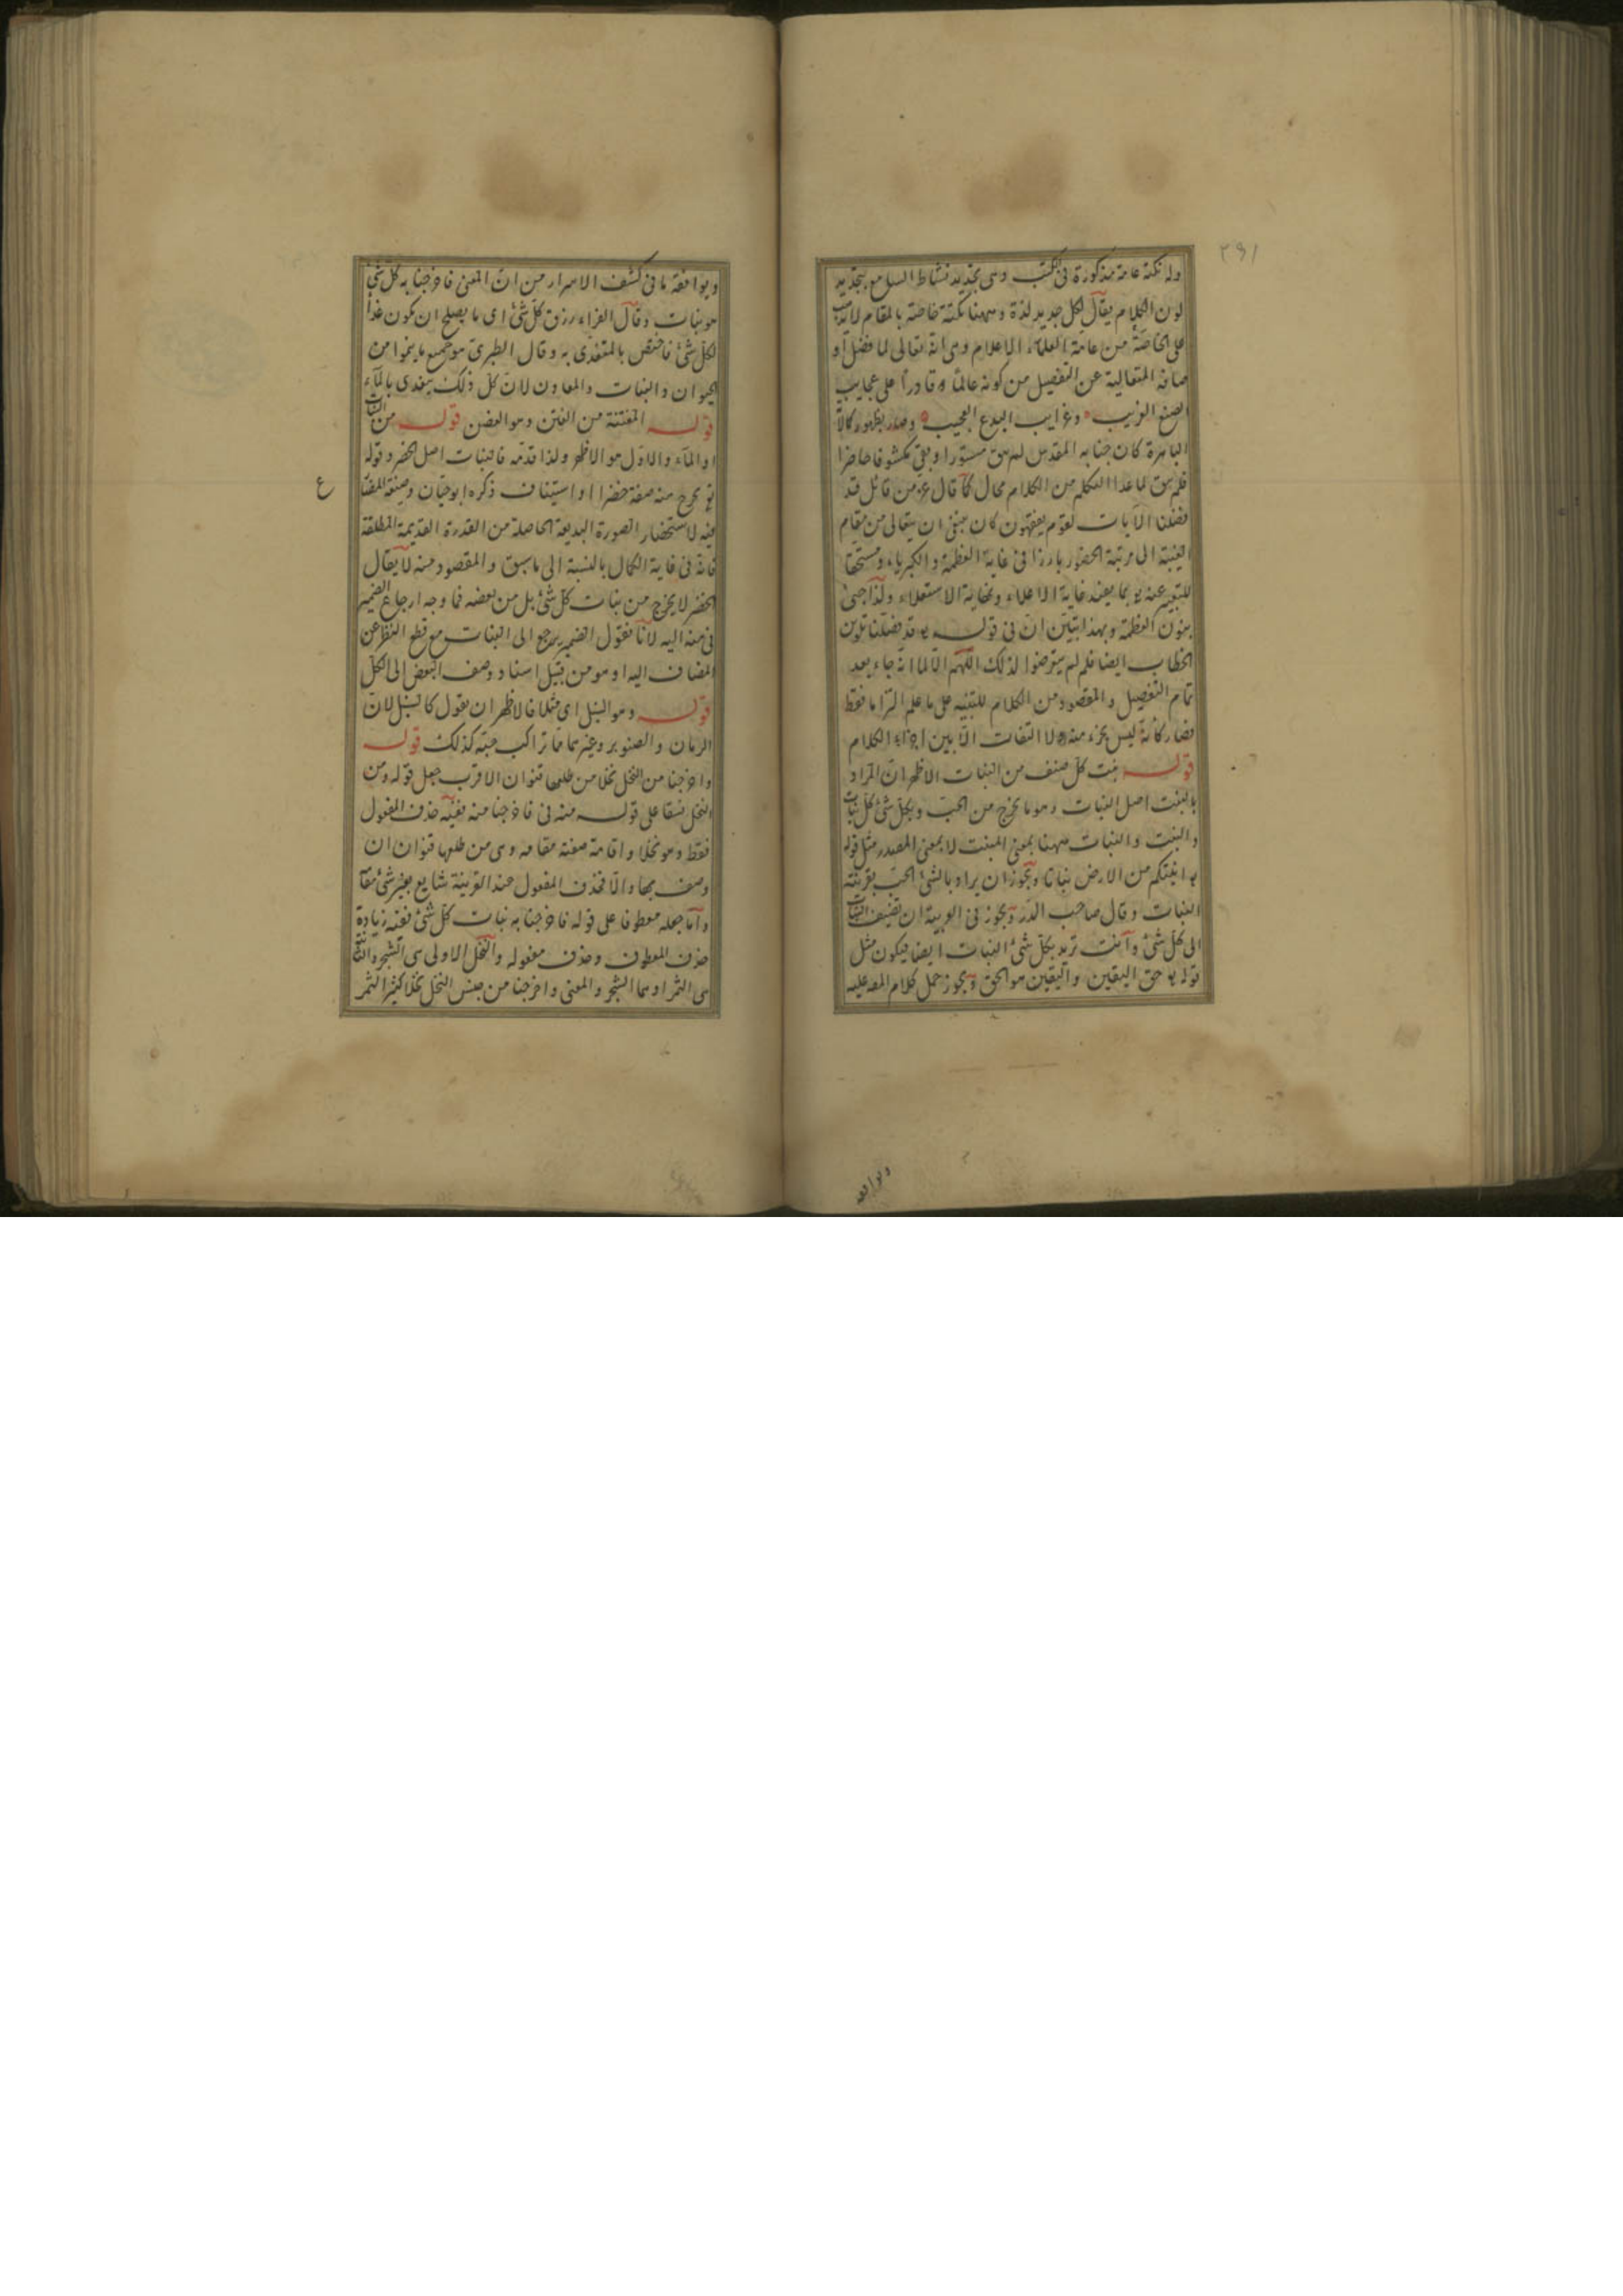 ٢٩١
وله نكتة عامة مذكورة فى الكتب وهى تجديد نشاط السامع بتجديد
لون الكلام يقال لكل جديد لذة وههنا نكتة خاصة بالمقام لا تذهب
على الخاصة من عامة العلماء الاعلام وهى انه تعالى لما فصل او
صافه المتعالية عن التفصيل من كونه عالما وقادرا على عجايب
الصنع الغريب وغرايب البدع العجيب وصدر بظهور كالا
الباهرة كان جنابه المقدس لم يبق مستورا وبقى مكشوفا حاضرا
فلم يبق لما عدا التكلم من الكلام مجال كما قال عز من قائل قد
فصلنا الآيات لقوم يفقهون كان ينبغى ان يتعالى من مقام
الغيبة الى مرتبة الحضور بارزا فى غاية العظمة والكبرياء ومستحقا
للتعبير عنه بما يفيد غاية الاعلاء ونهاية الاستعلاء ولذا جىء
بنون العظمة وبهذا تبين ان فى قوله قد فصلنا تلوين
الخطاب ايضا فلم لم يتعرضوا لذلك اللهم الا لما انه جاء بعد
تمام التفصيل والمقصود من الكلام للتنبيه على ما علم التزاما فقط
فصار كانه ليس بجزء منه ولا التفات الا بين اجزاء الكلام
قوله نبت كل صنف من النبات الاظهر ان المراد
بالنبت اصل النبات وهو ما يخرج من الحب وبكل شئ كل نبات
والنبت والنبات ههنا بمعنى المنبت لا بمعنى المصدر مثل قوله
انبتكم من الارض نباتا ويجوز ان يراد بالشئ الحب بقرينة
النبات وقال صاحب الدر ويجوز فى العربية ان تضيف النبات
الى كل شئ وانت تريد بكل شئ النبات ايضا فيكون مثل
قوله حق اليقين واليقين هو الحق ويجوز حمل كلام المص عليه
ويوافقه
ويوافقه ما فى كشف الاسرار من ان المعنى فاخرجنا به كل شئ
هو نبات وقال الفراء رزق كل شئ اى ما يصلح ان يكون غذا
لكل شئ فاختص بالمتغذى به وقال الطبرى هو جميع ما ينموا من
الحيوان والنبات والمعادن لان كل ذلك يتغذى بالماء
قوله المفتنة من الفنن وهو الغصن قوله من النبات
او الماء والاول هو الاظهر ولذا قدمه فالنبات اصل الخضر وقوله
نخرج منه صفة خضرا او استيناف ذكره ابو حيان وصيغة المضا
ع
فيه لاستحضار الصورة البديعة الحاصلة من القدرة القديمة المطلقة
فانه فى غاية الكمال بالنسبة الى ما سبق والمقصود منه لا يقال
الخضر لا يخرج من نبات كل شئ بل من بعضه فما وجه ارجاع الضمير
فى منه اليه لانا نقول الضمير يرجع الى النبات مع قطع النظر عن
المضاف اليه او هو من قبيل اسناد وصف البعض الى الكل
قوله وهو السنبل اى مثلا فالاظهر ان يقول كالسنبل لان
الرمان والصنوبر وغيرهما مما تراكب حبه كذلك قوله
واخرجنا من النخل نخلا من طلعها قنوان الاقرب جعل قوله ومن
النخل نسقا على قوله منه فى فاخرجنا منه ففيه حذف المفعول
فقط وهو نخلا واقامة صفته مقامه وهى من طلعها قنوان ان
وصف بها والا فحذف المفعول عند القرينة شايع بغير شئ مقا
واما جعله معطوفا على قوله فاخرجنا به نبات كل شئ ففيه زيادة
حذف المعطوف وحذف مفعوله والنخل الاولى هى الشجر والثانية
هى الثمر او هما الشجر والمعنى واخرجنا من جنس النخل نخلا كثير الثمر